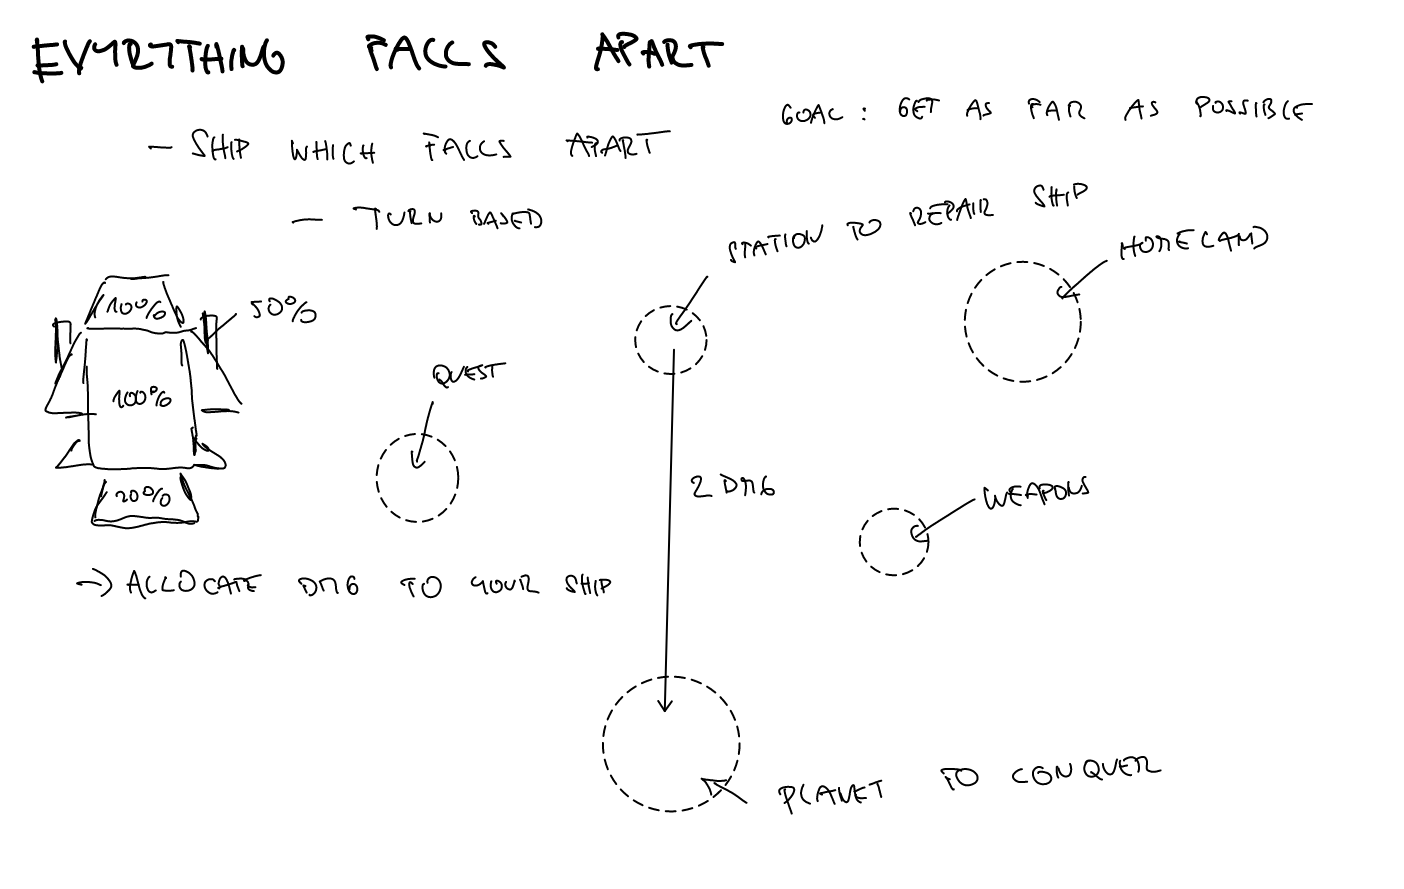 EVERYTHING FALLS APART
GOAL: GET AS FAR AS POSSIBLE
- SHIP WHICH FALLS APART
- TURN BASED
STATION TO REPAIR SHIP
HOMELAND
100%
50%
100%
20%
QUEST
2 DMG
WEAPONS
-> ALLOCATE DMG TO YOUR SHIP
PLANET TO CONQUER